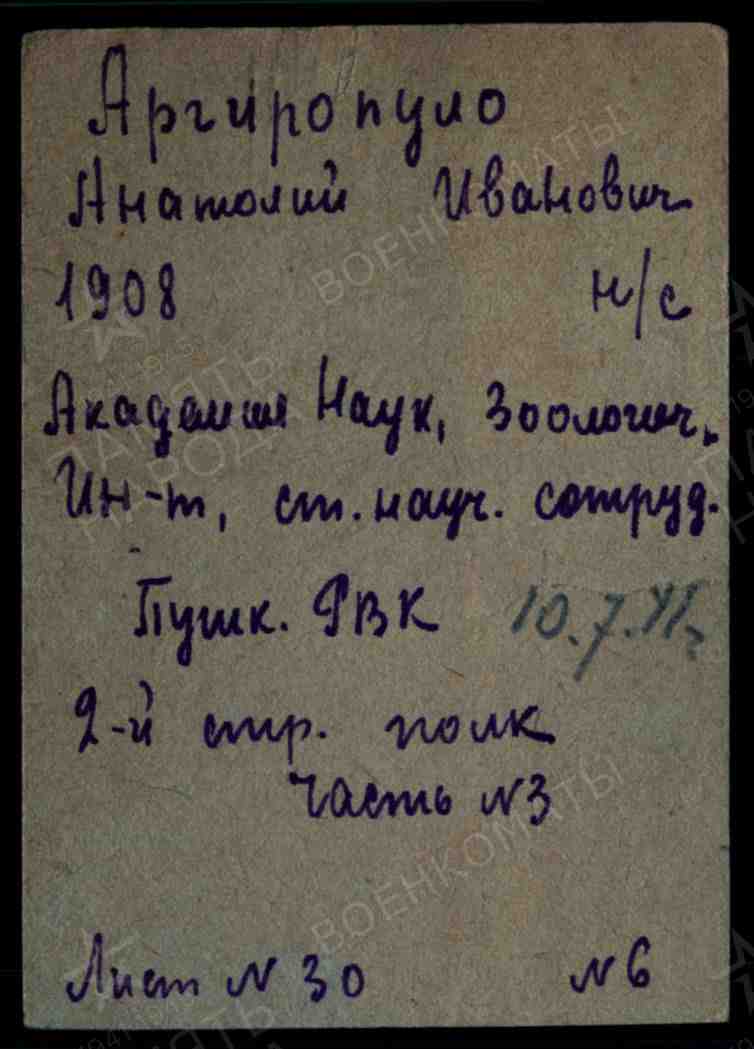 Аргиропуло
Анатолий Иванович
1908 н/с
Академия Наук, Зоологич.
Ин-т, ст. науч. сотруд.
Пушк. РВК 10.7.41г
2-й стр. полк
Часть №3
Лист № 30 № 6